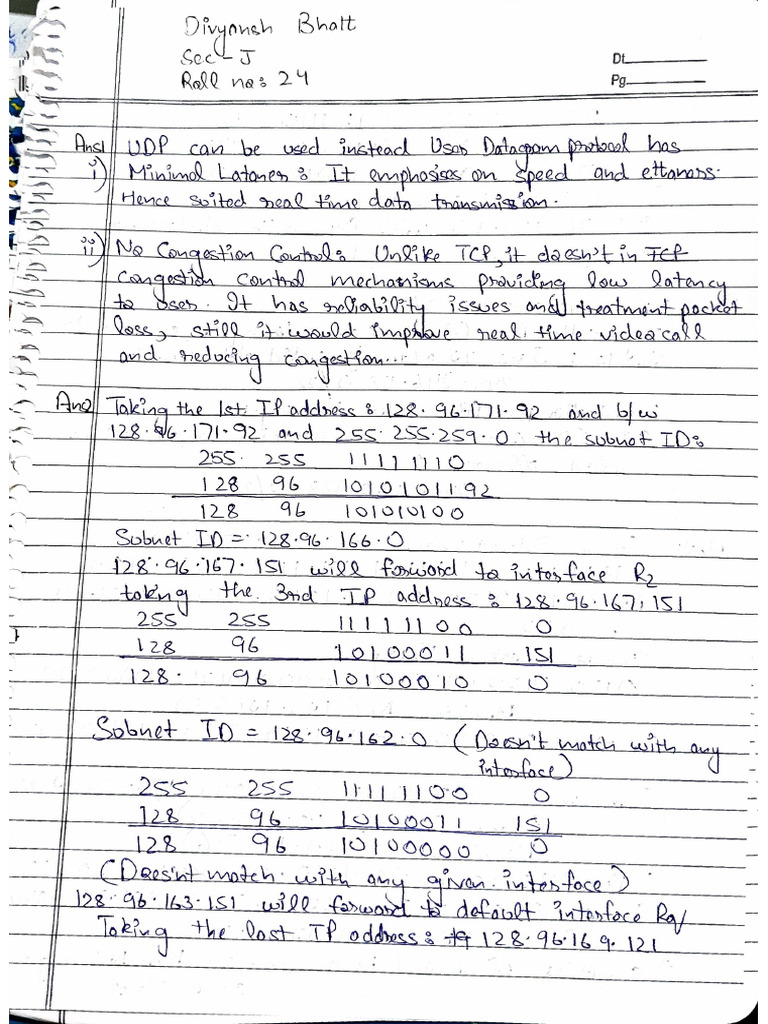 Divyansh Bhatt
Sec - J
Roll no: 24
Dt.
Pg.
Ans1 UDP can be used instead User Datagram protocol has
i) Minimal Latancy : It emphasises on speed and
Hence suited real time data transmission.
ii) No Congestion Control: Unlike TCP, it doesn't in TCP
congestion control mechanisms providing low latency
to user. It has reliability issues and treatment packet
loss, still it would improve real time video call
and reducing congestion...
Ans2 Taking the 1st IP address : 128.96.171.92 and b/w
128.96.171.92 and 255.255.259.0 the subnet ID:
255. 255 11111110
128 96 1010101192
128 96 101010100
Subnet ID = 128.96.166.0
128.96.167.151 will forword to interface R2
taking the 3rd IP address : 128.96.167.151
255 255 11111100 0
128 96 10100011 151
128. 96 10100010 0
Subnet ID = 128.96.162.0 (Doesn't match with any
interface)
255 255 11111100 0
128 96 10100011 151
128 96 10100000 0
(Does'nt match with any given interface)
128.96.163.151 will forward to default interface
Taking the last IP address : 128.96.169.121